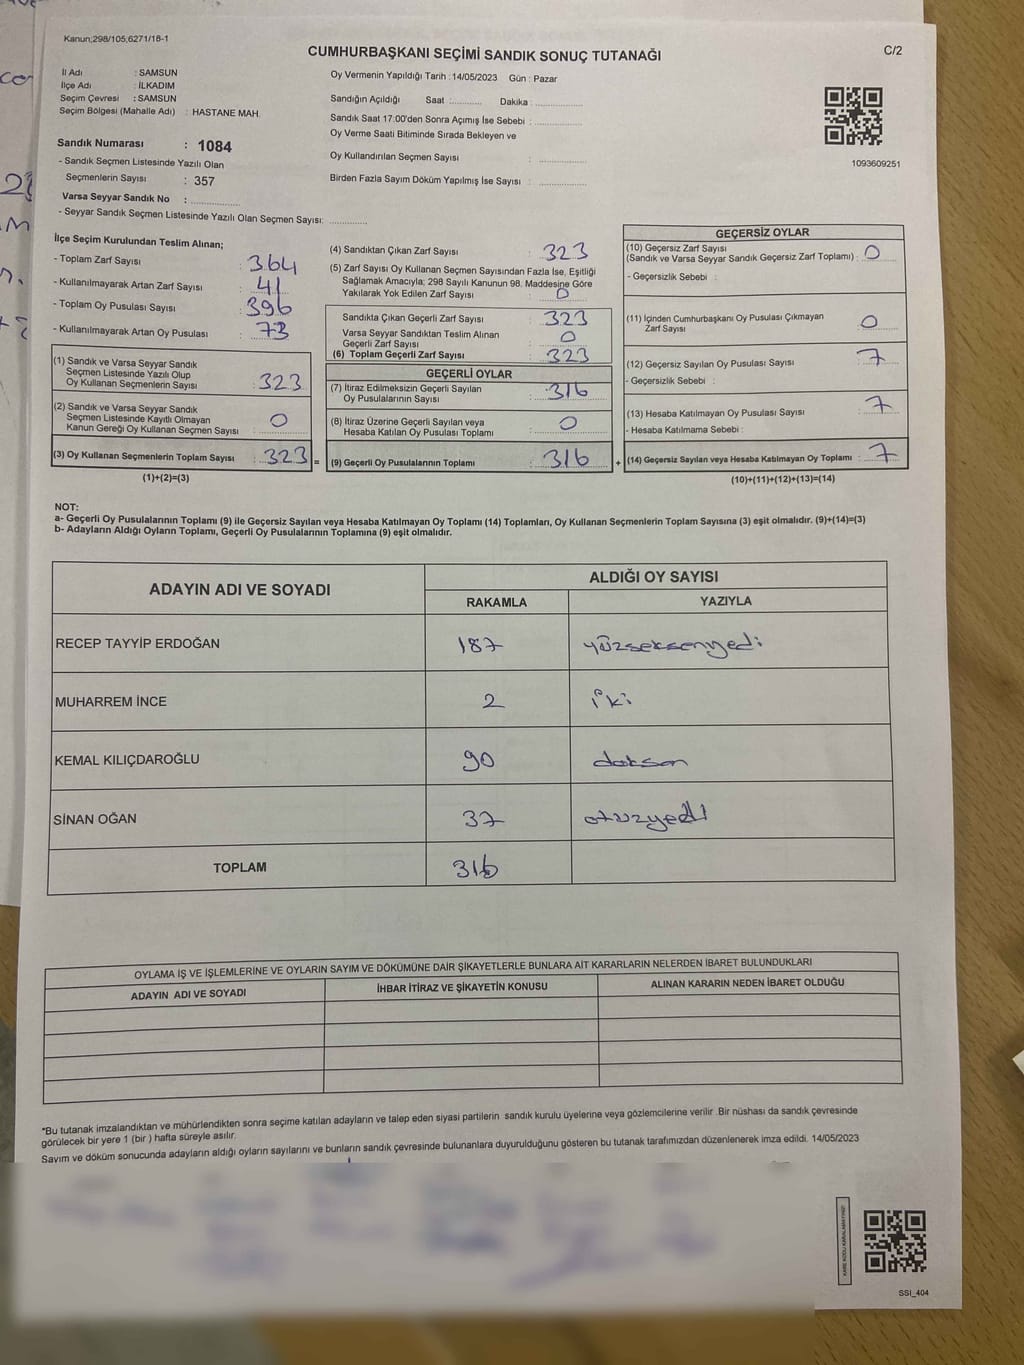 Kanun;298/105;6271/18-1
C/2
CUMHURBAŞKANI SEÇİMİ SANDIK SONUÇ TUTANAĞI
İl Adı : SAMSUN
İlçe Adı : İLKADIM
Seçim Çevresi : SAMSUN
Seçim Bölgesi (Mahalle Adı) : HASTANE MAH.
Sandık Numarası : 1084
- Sandık Seçmen Listesinde Yazılı Olan
Seçmenlerin Sayısı : 357
Varsa Seyyar Sandık No : ..............
- Seyyar Sandık Seçmen Listesinde Yazılı Olan Seçmen Sayısı: ............
Oy Vermenin Yapıldığı Tarih : 14/05/2023 Gün : Pazar
Sandığın Açıldığı Saat :........... Dakika : ................
Sandık Saat 17:00'den Sonra Açımış İse Sebebi : ................
Oy Verme Saati Bitiminde Sırada Bekleyen ve
Oy Kullandırılan Seçmen Sayısı : ................
Birden Fazla Sayım Döküm Yapılmış İse Sayısı : ................
1093609251
İlçe Seçim Kurulundan Teslim Alınan;
- Toplam Zarf Sayısı : 364
- Kullanılmayarak Artan Zarf Sayısı : 41
- Toplam Oy Pusulası Sayısı : 396
- Kullanılmayarak Artan Oy Pusulası : 73
(1) Sandık ve Varsa Seyyar Sandık
Seçmen Listesinde Yazılı Olup
Oy Kullanan Seçmenlerin Sayısı : 323
(2) Sandık ve Varsa Seyyar Sandık
Seçmen Listesinde Kayıtlı Olmayan
Kanun Gereği Oy Kullanan Seçmen Sayısı : 0
(3) Oy Kullanan Seçmenlerin Toplam Sayısı : 323 =
(1)+(2)=(3)
(4) Sandıktan Çıkan Zarf Sayısı : 323
(5) Zarf Sayısı Oy Kullanan Seçmen Sayısından Fazla İse, Eşitliği
Sağlamak Amacıyla; 298 Sayılı Kanunun 98. Maddesine Göre
Yakılarak Yok Edilen Zarf Sayısı : 0
Sandıkta Çıkan Geçerli Zarf Sayısı : 323
Varsa Seyyar Sandıktan Teslim Alınan
Geçerli Zarf Sayısı : 0
(6) Toplam Geçerli Zarf Sayısı : 323
GEÇERLİ OYLAR
(7) İtiraz Edilmeksizin Geçerli Sayılan
Oy Pusulalarının Sayısı : 316
(8) İtiraz Üzerine Geçerli Sayılan veya
Hesaba Katılan Oy Pusulası Toplamı : 0
(9) Geçerli Oy Pusulalarının Toplamı : 316 +
GEÇERSİZ OYLAR
(10) Geçersiz Zarf Sayısı
(Sandık ve Varsa Seyyar Sandık Geçersiz Zarf Toplamı) : 0
- Geçersizlik Sebebi :
(11) İçinden Cumhurbaşkanı Oy Pusulası Çıkmayan
Zarf Sayısı : 0
(12) Geçersiz Sayılan Oy Pusulası Sayısı : 7
- Geçersizlik Sebebi :
(13) Hesaba Katılmayan Oy Pusulası Sayısı : 7
- Hesaba Katılmama Sebebi :
(14) Geçersiz Sayılan veya Hesaba Katılmayan Oy Toplamı : 7
(10)+(11)+(12)+(13)=(14)
NOT:
a- Geçerli Oy Pusulalarının Toplamı (9) ile Geçersiz Sayılan veya Hesaba Katılmayan Oy Toplamı (14) Toplamları, Oy Kullanan Seçmenlerin Toplam Sayısına (3) eşit olmalıdır. (9)+(14)=(3)
b- Adayların Aldığı Oyların Toplamı, Geçerli Oy Pusulalarının Toplamına (9) eşit olmalıdır.
ADAYIN ADI VE SOYADI
ALDIĞI OY SAYISI
RAKAMLA YAZIYLA
RECEP TAYYİP ERDOĞAN 187 yüzseksenyedi
MUHARREM İNCE 2 iki
KEMAL KILIÇDAROĞLU 90 doksan
SİNAN OĞAN 37 otuzyedi
TOPLAM 316
OYLAMA İŞ VE İŞLEMLERİNE VE OYLARIN SAYIM VE DÖKÜMÜNE DAİR ŞİKAYETLERLE BUNLARA AİT KARARLARIN NELERDEN İBARET BULUNDUKLARI
ADAYIN ADI VE SOYADI İHBAR İTİRAZ VE ŞİKAYETİN KONUSU ALINAN KARARIN NEDEN İBARET OLDUĞU
*Bu tutanak imzalandıktan ve mühürlendikten sonra seçime katılan adayların ve talep eden siyasi partilerin sandık kurulu üyelerine veya gözlemcilerine verilir .Bir nüshası da sandık çevresinde
görülecek bir yere 1 (bir ) hafta süreyle asılır.
Sayım ve döküm sonucunda adayların aldığı oyların sayılarını ve bunların sandık çevresinde bulunanlara duyurulduğunu gösteren bu tutanak tarafımızdan düzenlenerek imza edildi. 14/05/2023
SSİ_404